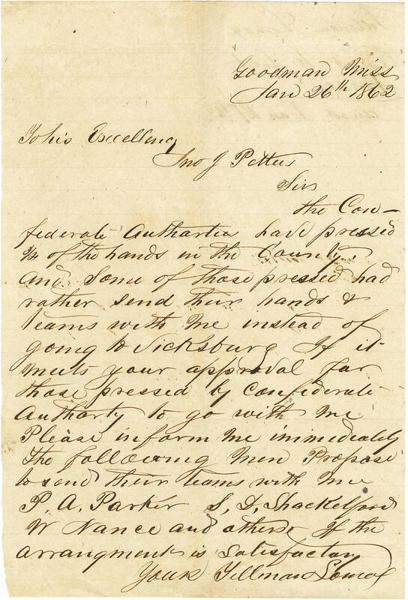 Goodman Miss
Jan 26th 1862
To his Excellency
Jno J Pettus
Sir
the Con-
federate Autharties have pressed
1/4 of the hands in the County
and some of those pressed had
rather send their hands &
teams with me instead of
going to Vicksburg If it
meets your approval for
those pressed by confederate
Autharty to go with me
Please inform me immediately
The following men Propose
to send their teams with me
P. A. Parker S, D, Shackelford
W Nance and others If the
arrangment is satisfactory
Yours Tillman